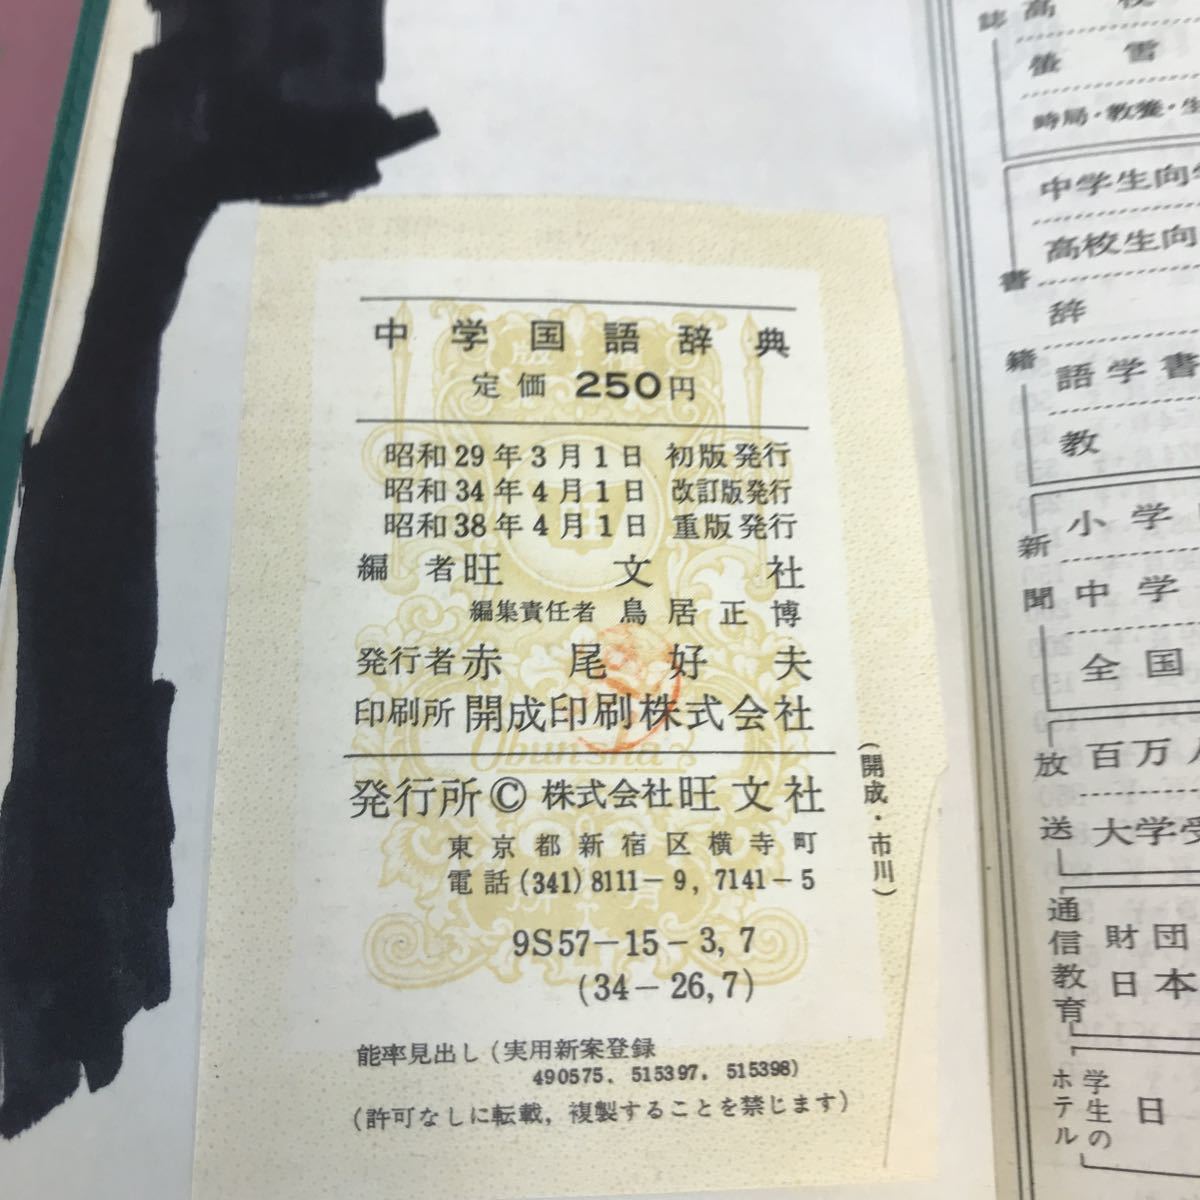 中学国語辞典
定価 250円
昭和29年3月1日 初版発行
昭和34年4月1日 改訂版発行
昭和38年4月1日 重版発行
編者 旺文社
編集責任者 鳥居正博
発行者 赤尾好夫
印刷所 開成印刷株式会社
発行所 © 株式会社 旺文社
東京都新宿区横寺町
電話 (341) 8111-9, 7141-5
(開成・市川)
9S57-15-3, 7
(34-26, 7)
能率見出し (実用新案登録
490575, 515397, 515398)
(許可なしに転載, 複製することを禁じます)
Obunsha
誌
高校
螢雪
時局・教養・生
書籍
中学生向
高校生向
辞
語学書
教
新聞
小学
中学
全国
放送
百万人
大学受
通信教育
財団
日本
学生の
ホテル
日